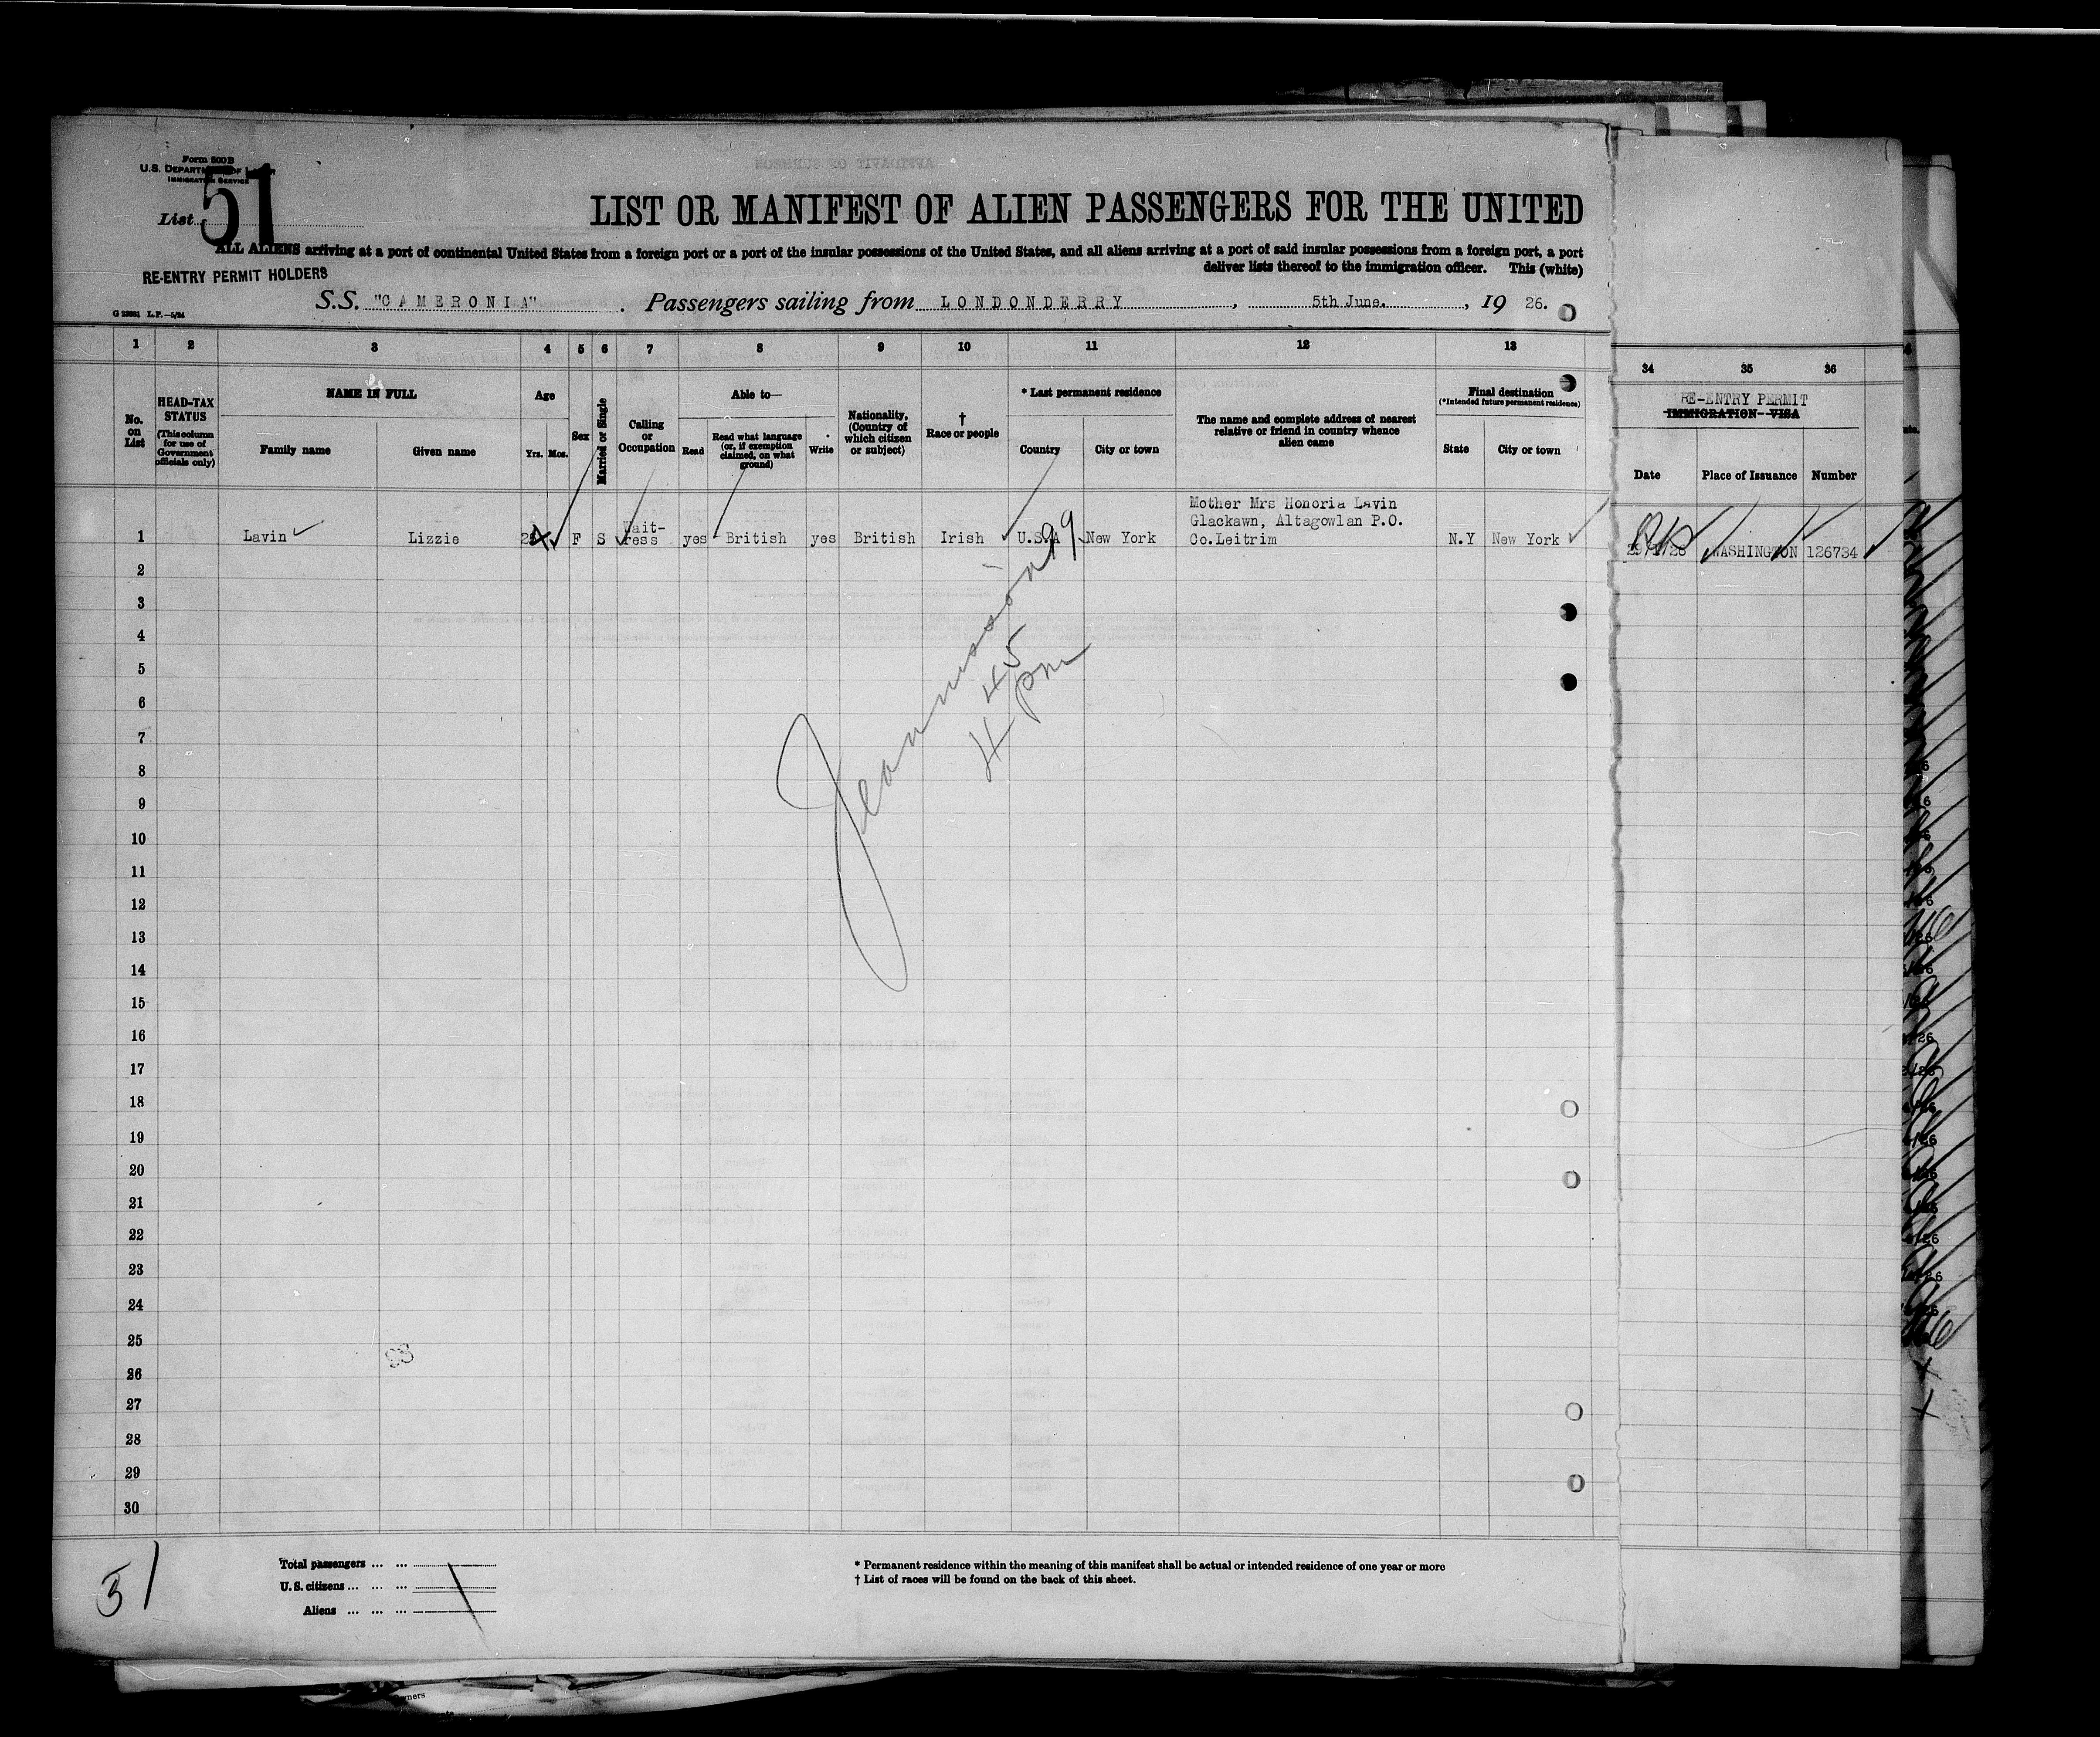 Form 500 B
U.S. DEPARTMENT OF LABOR
IMMIGRATION SERVICE
List 51
LIST OR MANIFEST OF ALIEN PASSENGERS FOR THE UNITED
ALL ALIENS arriving at a port of continental United States from a foreign port or a port of the insular possessions of the United States, and all aliens arriving at a port of said insular possessions from a foreign port, a port
deliver lists thereof to the immigration officer. This (white)
RE-ENTRY PERMIT HOLDERS
S.S. "CAMERONIA". Passengers sailing from LONDONDERRY, 5th June., 19 26.
1 2 3 4 5 6 7 8 9 10 11 12 13
34 35 36
No. on List
HEAD-TAX STATUS
(This column for use of Government officials only)
NAME IN FULL
Family name
Given name
Age
Yrs. Mos.
Sex
Married or Single
Calling or Occupation
Able to—
Read
Read what language (or, if exemption claimed, on what ground)
Write
Nationality, (Country of which citizen or subject)
† Race or people
* Last permanent residence
Country
City or town
The name and complete address of nearest relative or friend in country whence alien came
Final destination
(*Intended future permanent residence)
State
City or town
RE-ENTRY PERMIT
IMMIGRATION VISA
Date
Place of Issuance
Number
Mother Mrs Honoria Lavin
Glackawn, Altagowlan P.O.
1 Lavin Lizzie F S Wait-ress yes British yes British Irish U.S.A New York Co.Leitrim N.Y New York WASHINGTON 126734
99
45
4 pm
2
3
4
5
6
7
8
9
10
11
12
13
14
15
16
17
18
19
20
21
22
23
24
25
26
27
28
29
30
51
Total passengers ... ...
U.S. citizens ... ... ...
Aliens ... ... ...
* Permanent residence within the meaning of this manifest shall be actual or intended residence of one year or more
† List of races will be found on the back of this sheet.